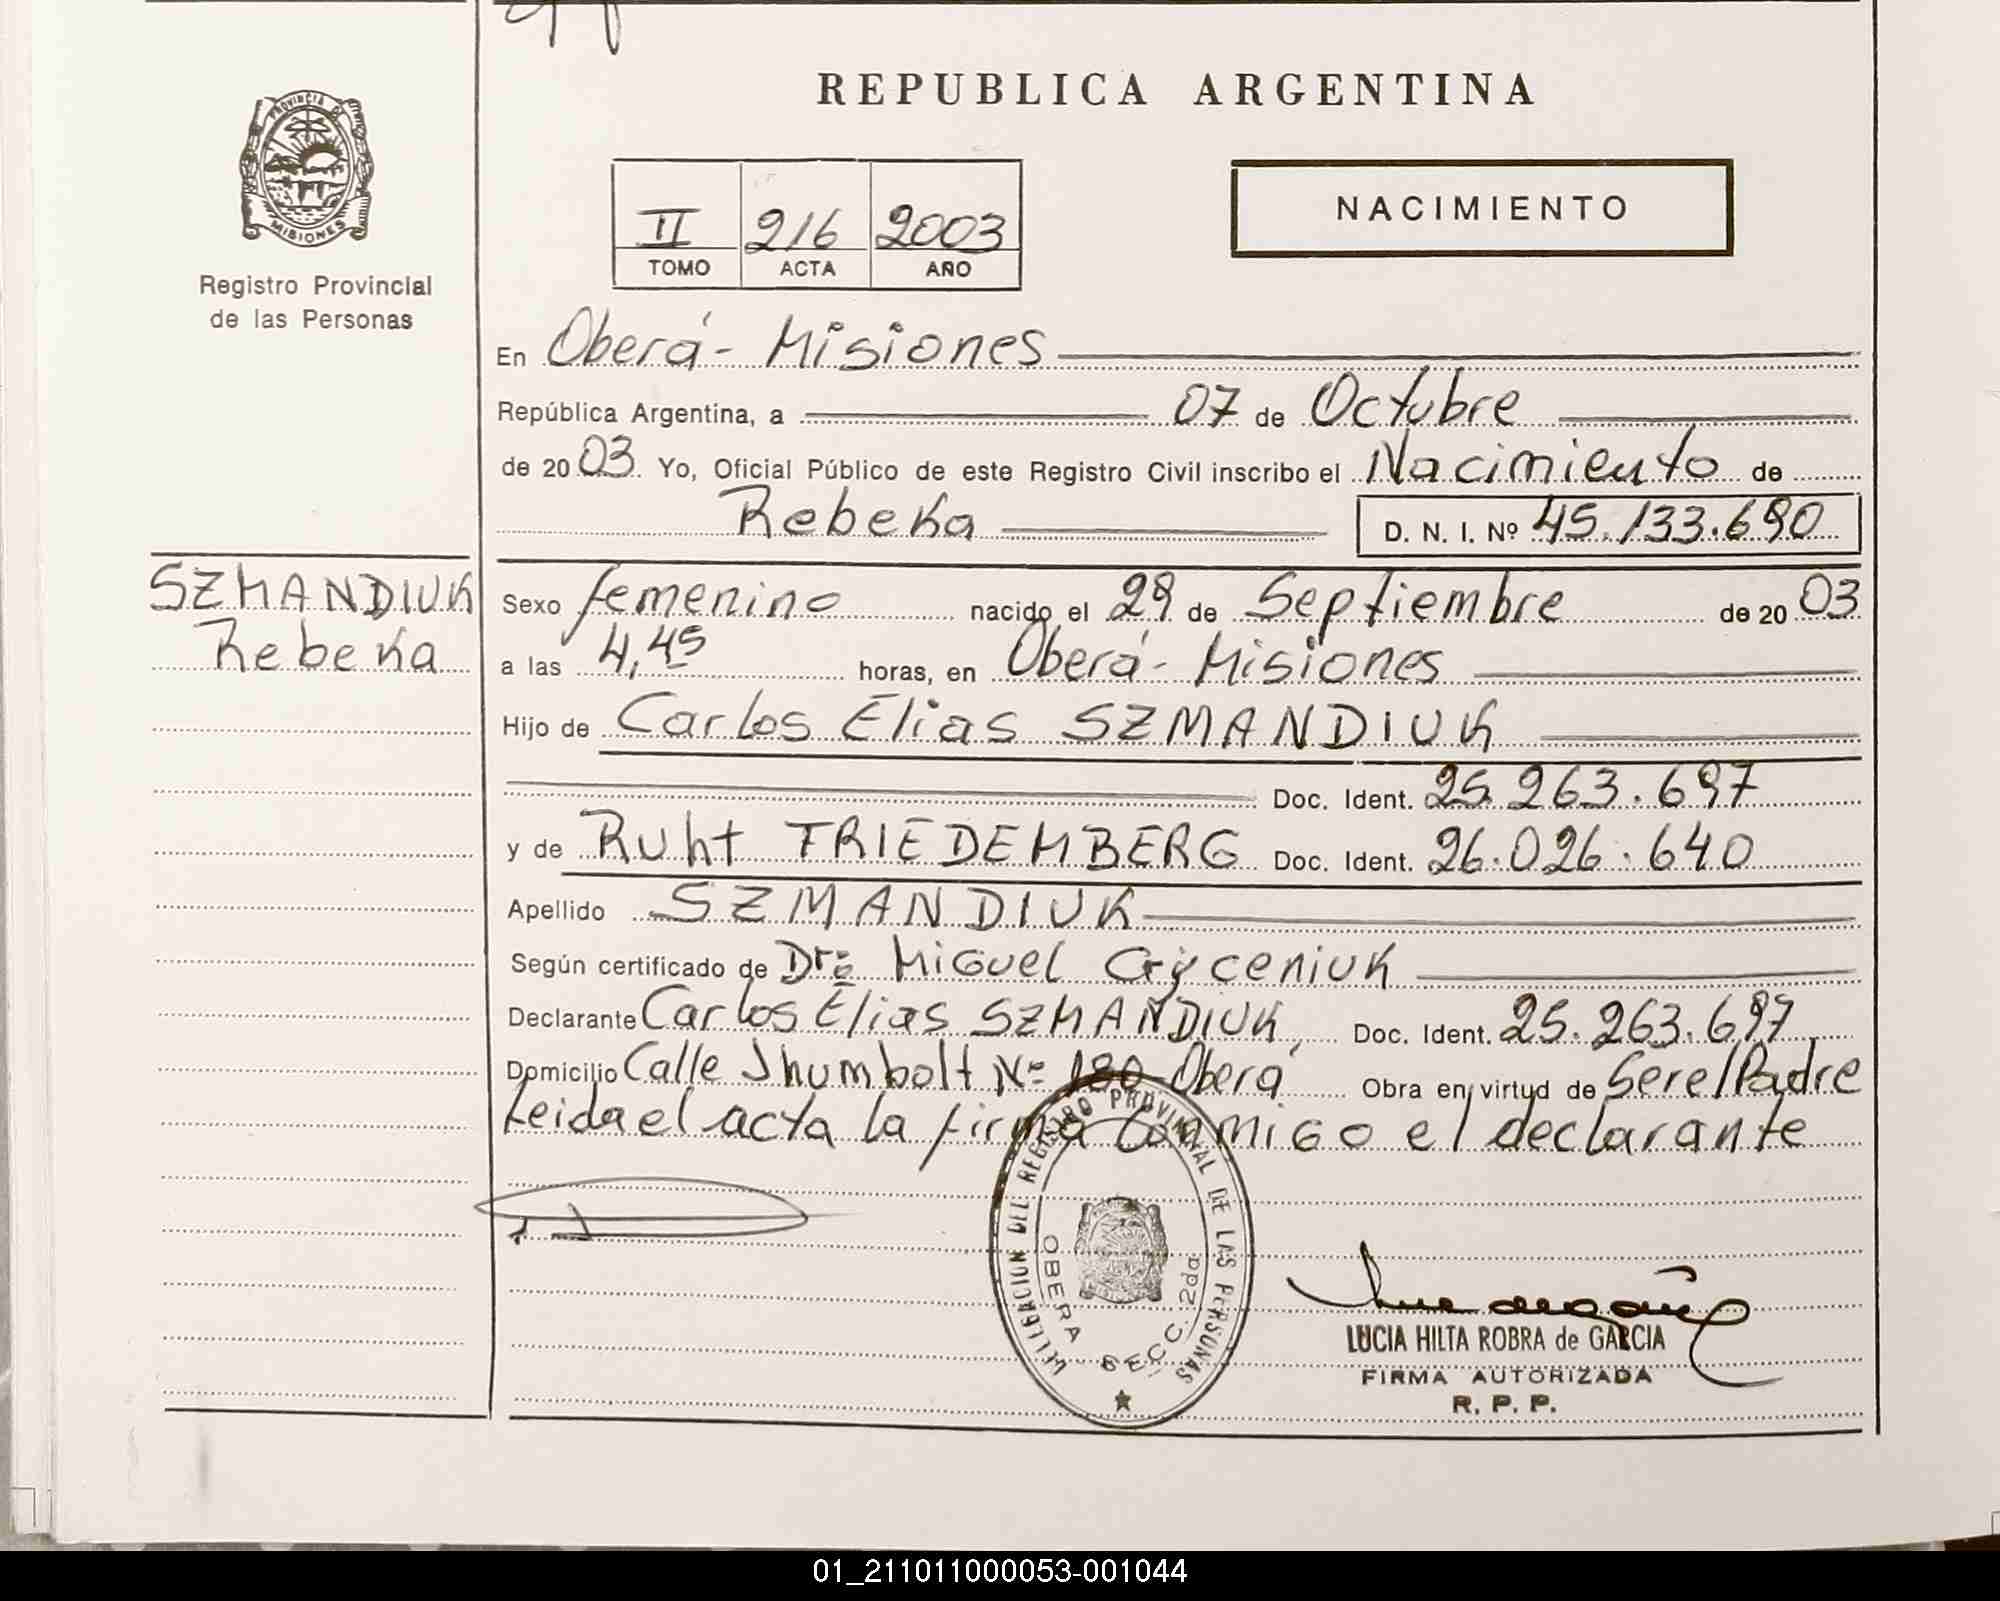 REPUBLICA ARGENTINA
PROVINCIA DE MISIONES
Registro Provincial
de las Personas
II 216 2003
TOMO ACTA AÑO
NACIMIENTO
En Oberá - Misiones
República Argentina, a 07 de Octubre
de 20 03 Yo, Oficial Público de este Registro Civil inscribo el Nacimiento de
Rebeka D. N. I. Nº 45.133.690
SZMANDIUK
Rebeka
Sexo femenino nacido el 29 de Septiembre de 20 03
a las 4,45 horas, en Oberá - Misiones
Hijo de Carlos Elias SZMANDIUK
Doc. Ident. 25.263.697
y de Ruht FRIEDEMBERG Doc. Ident. 26.026.640
Apellido SZMANDIUK
Según certificado de Dr. Miguel
Declarante Carlos Elias SZMANDIUK, Doc. Ident. 25.263.697
Domicilio Calle Jhumbolt Nº 180 Oberá Obra en virtud de Ser el Padre
Leida el acta la firma conmigo el declarante
DELEGACION DEL REGISTRO PROVINCIAL DE LAS PERSONAS
OBERA SECC. 2da
LUCIA HILTA ROBRA de GARCIA
FIRMA AUTORIZADA
R. P. P.
01_211011000053-001044